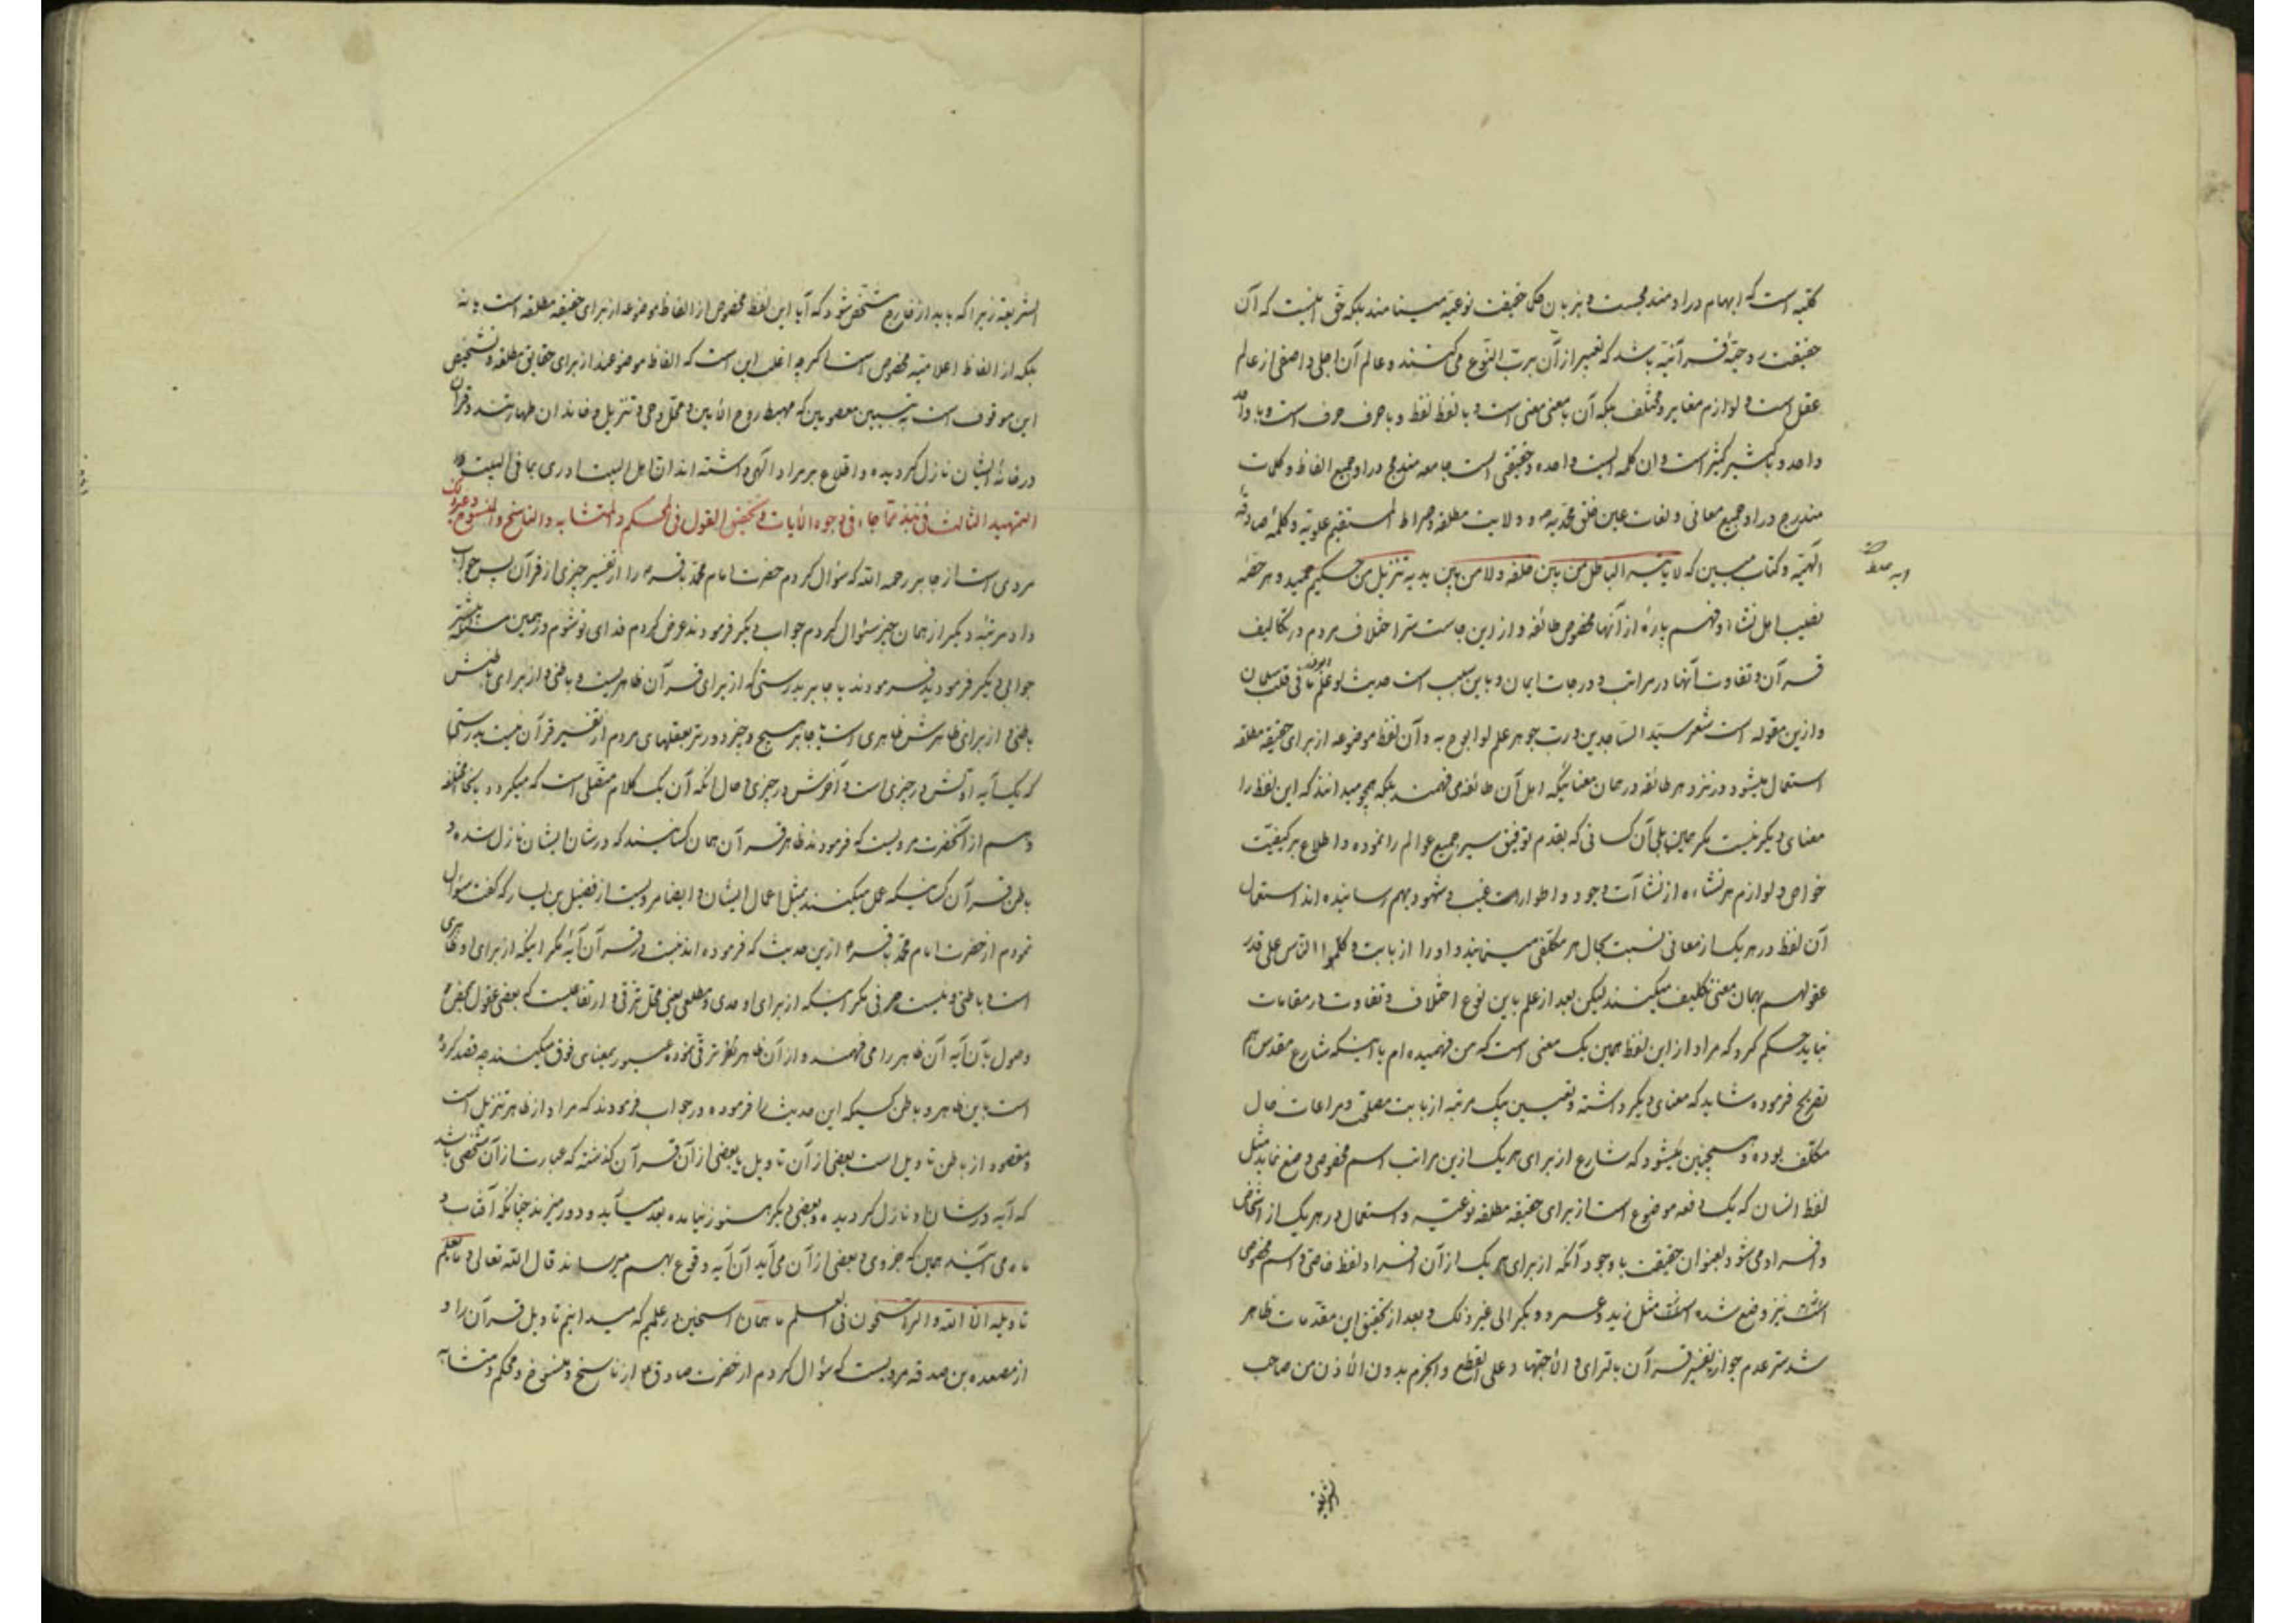 کلیه است که ابهام در او مندمج است و بزبان حکما حقیقت نوعیه مینامند بلکه حق اینست که آن
حقیقت روحیهٔ قرآنیه باشد که تعبیر از آن برب النوع می کنند و عالم آن اجلی و اصفی از عالم
عقل است و لوازم مغایر و مختلف بلکه آن با معنی معنی است و با لفظ لفظ و با حرف حرف است و با واحد
واحد و با کثیر کثیر است و ان کلمه ایست واحده و حقیقتی است جامعه مندمج در او جمیع الفاظ و کلمات
مندرج در او جمیع معانی و لغات عین خلق محمدیه ص و ولایت مطلقه و صراط المستقیم علویه و کلمهٔ صادقه
الهیه و کتاب مبین که لا یأتیه الباطل من بین خلفه و لا من بین یدیه تنزیل من حکیم حمید و هر حصه
نصیب اهل نشاه و فهم پارهٔ از آنها مخصوص طائفه و از این جاست سر اختلاف مردم در تکالیف
قرآن و تفاوت آنها در مراتب و درجات ایمان و باین سبب است حدیث لو علم ابوذر ما فی قلب سلمان
و ازین مقوله است شعر سید الساجدین و رب جوهر علم لو ابوح به و آن لفظ موضوعه از برای حقیقه مطلقه
استعمال میشود در نزد هر طائفه در همان معنائیکه اهل آن طائفه می فهمند بلکه همچو میدانند که این لفظ را
معنای دیگر نیست مگر همین بلی آن کسانی که بقدم توفیق سیر جمیع عوالم را نموده و اطلاع بر کیفیت
خواص و لوازم هر نشاءه از نشآت وجود و اطوار غیب و شهود بهم رسانیده اند استعمال
آن لفظ در هر یک از معانی نسبت بحال هر مکلفی مینمایند و او را از بابت و کلموا الناس علی قدر
عقولهم بهمان معنی تکلیف میکنند لیکن بعد از علم باین نوع اختلاف و تفاوت در مقامات
نباید حکم کرد که مراد از این لفظ همین یک معنی است که من فهمیده ام با اینکه شارع مقدس هم
تصریح فرموده شاید که معنای دیگر داشته و تعیین یک مرتبه از بابت مصلحت و مراعات حال
مکلف بوده و همچنین میشود که شارع از برای هر یک ازین مراتب اسم مخصوصی وضع نماید مثل
لفظ انسان که یک دفعه موضوع است از برای حقیقه مطلقه نوعیه و استعمال در هر یک از اشخاص
و افراد می شود بعنوان حقیقت با وجود آنکه از برای هر یک از آن افراد لفظ خاصی و اسم مخصوصی
نیز وضع شده مثل زید و عمرو و بکر الی غیر ذلک و بعد از تحقیق این مقدمات ظاهر
شد سر عدم جواز تفسیر قرآن بالرای و الاجتهاد علی القطع و الجزم بدون الاذن من صاحب
الشریعه
الشریعة زیرا که باید از خارج مشخص شود که آیا این لفظ مخصوص از الفاظ موضوعه از برای حقیقه مطلقه است یا نه
بلکه از الفاظ اعلامیه مخصوص است اگر چه اغلب این است که الفاظ موضوعند از برای حقایق مطلقه و تشخیص
این موقوف است به تبیین معصومین که مهبط روح الامین و محل وحی و تنزیل و خاندان طهارتند و قرآن
در خانهٔ ایشان نازل گردیده و اطلاع بر مراد الهی داشته اند ان اهل البیت ادری بما فی البیت
التمهید الثالث فی نبذ مما جاء فی وجوه الآیات و تحقیق القول فی المحکم و المتشابه و الناسخ و المنسوخ و غیر ذلک
مروی است از جابر رحمه الله که سؤال کردم حضرت امام محمد باقر ع را از تفسیر چیزی از قرآن پس جواب
داد مرتبه دیگر از همان چیز سئوال کردم جواب دیگر فرمودند عرض کردم فدای تو شوم در همین مسئله پیشتر
جوابی دیگر فرمودید فرمودند یا جابر بدرستی که از برای قرآن ظاهریست و باطنی و از برای باطنش
باطنی و از برای ظاهرش ظاهری است یا جابر هیچ چیز دورتر بعقلهای مردم از تفسیر قرآن نیست بدرستی
که یک آیه اولش در چیزی است و آخرش در چیزی و حال آنکه آن یک کلام متصلی است که میگردد بانحاء مختلفه
و هم از آنحضرت مرویست که فرمودند ظاهر قرآن همان کسانیند که در شان ایشان نازل شده و
باطن قرآن کسانیکه عمل میکنند بمثل اعمال ایشان و ایضا مرویست از فضیل بن یسار که گفت سؤال
نمودم از حضرت امام محمد باقر ع ازین حدیث که فرموده اند نیست در قرآن آیهٔ مگر اینکه از برای او ظاهری
است و باطنی و نیست حرفی مگر اینکه از برای او حدی و مطلعی یعنی محل ترقی و ارتفاعیست که بعضی عقول بمحض
وصول بآن آیه آن ظاهر را می فهمند و از آن ظاهر ترقی نموده عبور بمعنای فوق میکنند چه قصد کرده
است باین ظاهر و باطن کسیکه این حدیث را فرموده در جواب فرمودند که مراد از ظاهر تنزیل است
و مقصود از باطن تاویل است بعضی از آن تاویل یا بعضی از آن قرآن گذشته که عبارت از آن شخصی باشد
که آیه در شان او نازل گردیده و بعضی دیگر هنوز نیامده بعد میآید و دور میزند چنانکه آفتاب و
ماه می آیند همین که جزوی و بعضی از آن می آید آن آیه وقوع بهم میرساند قال الله تعالی و ما یعلم
تاویله الا الله و الراسخون فی العلم ما همان راسخین در علمیم که میدانیم تاویل قرآن را و
از مصعده بن صدقه مرویست که سؤال کردم از حضرت صادق ع از ناسخ و منسوخ و محکم و متشابه